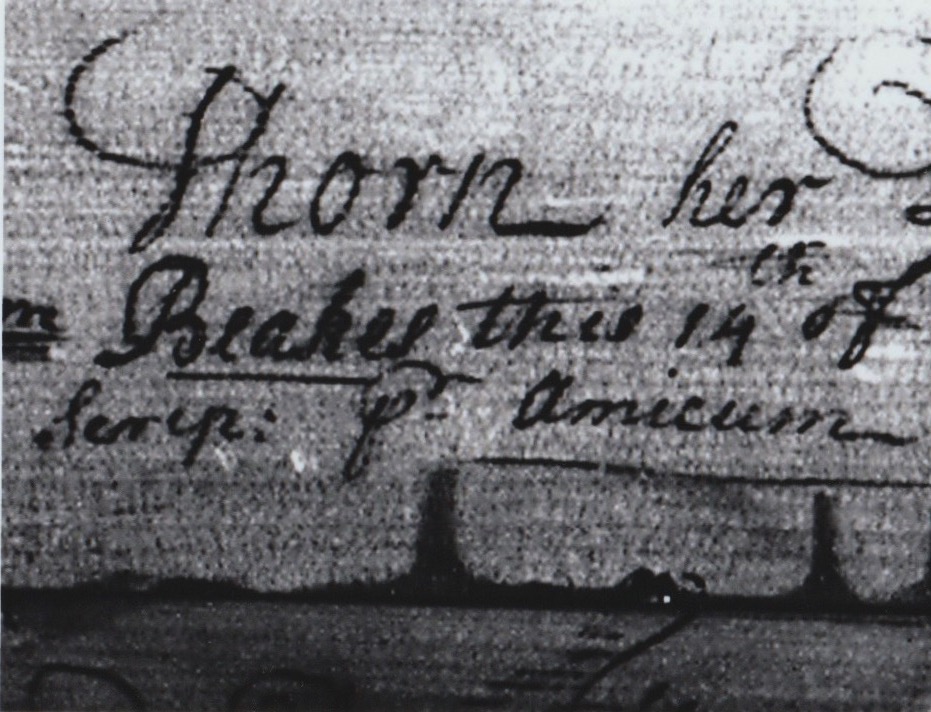 Thorn her
Beakes this 14th of
Scrip: pr Amicum